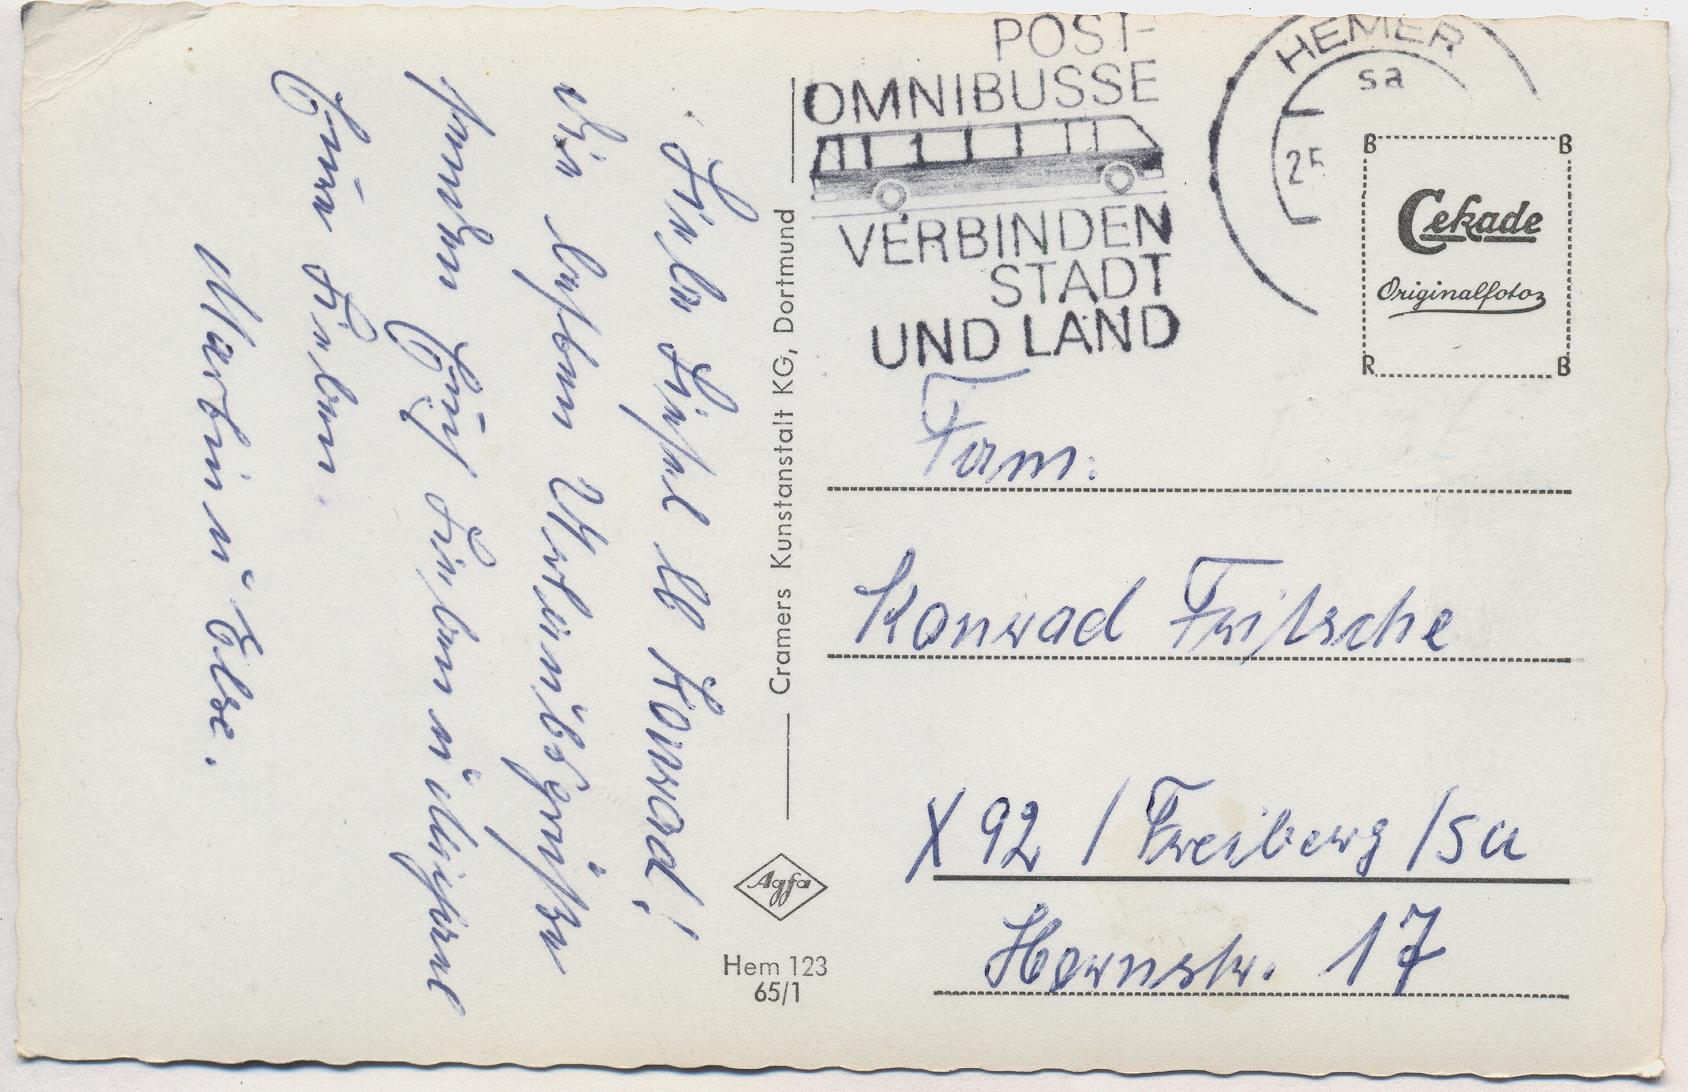 Liebe Lisel u Konrad!
Die besten Urlaubsgrüße
senden Euch Lieben
Eure Lieben
Martin u Else.
Cramers Kunstanstalt KG, Dortmund
Agfa
Hem 123
65/1
POST-
OMNIBUSSE
VERBINDEN
STADT
UND LAND
HEMER
sa
25
B B
Cekade
Originalfoto
R B
Fam:
Konrad Fritsche
X92 / Freiberg /Sa
Hornstr. 17